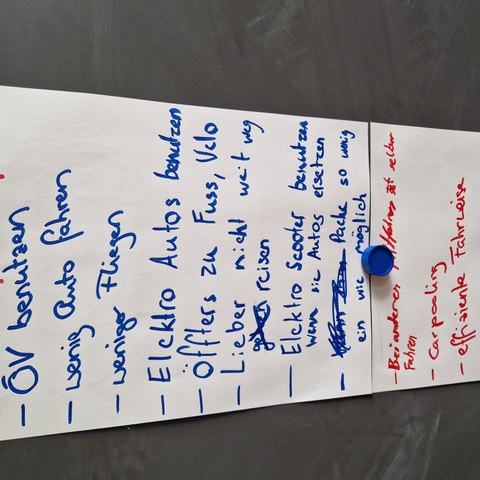 - ÖV benützen
- wenig Auto fahren
- weniger Fliegen
- Elektro Autos benutzen
- Öfflers zu Fuss, Velo
- Lieber nicht weit weg
reisen
- Elektro Scooter benutzen
wenn sie Autos ersetzen
- Packe so wenig
ein wie möglich
- Bei anderen mitfahren statt selber
fahren
- Carpooling
- effiziente Fahrweise